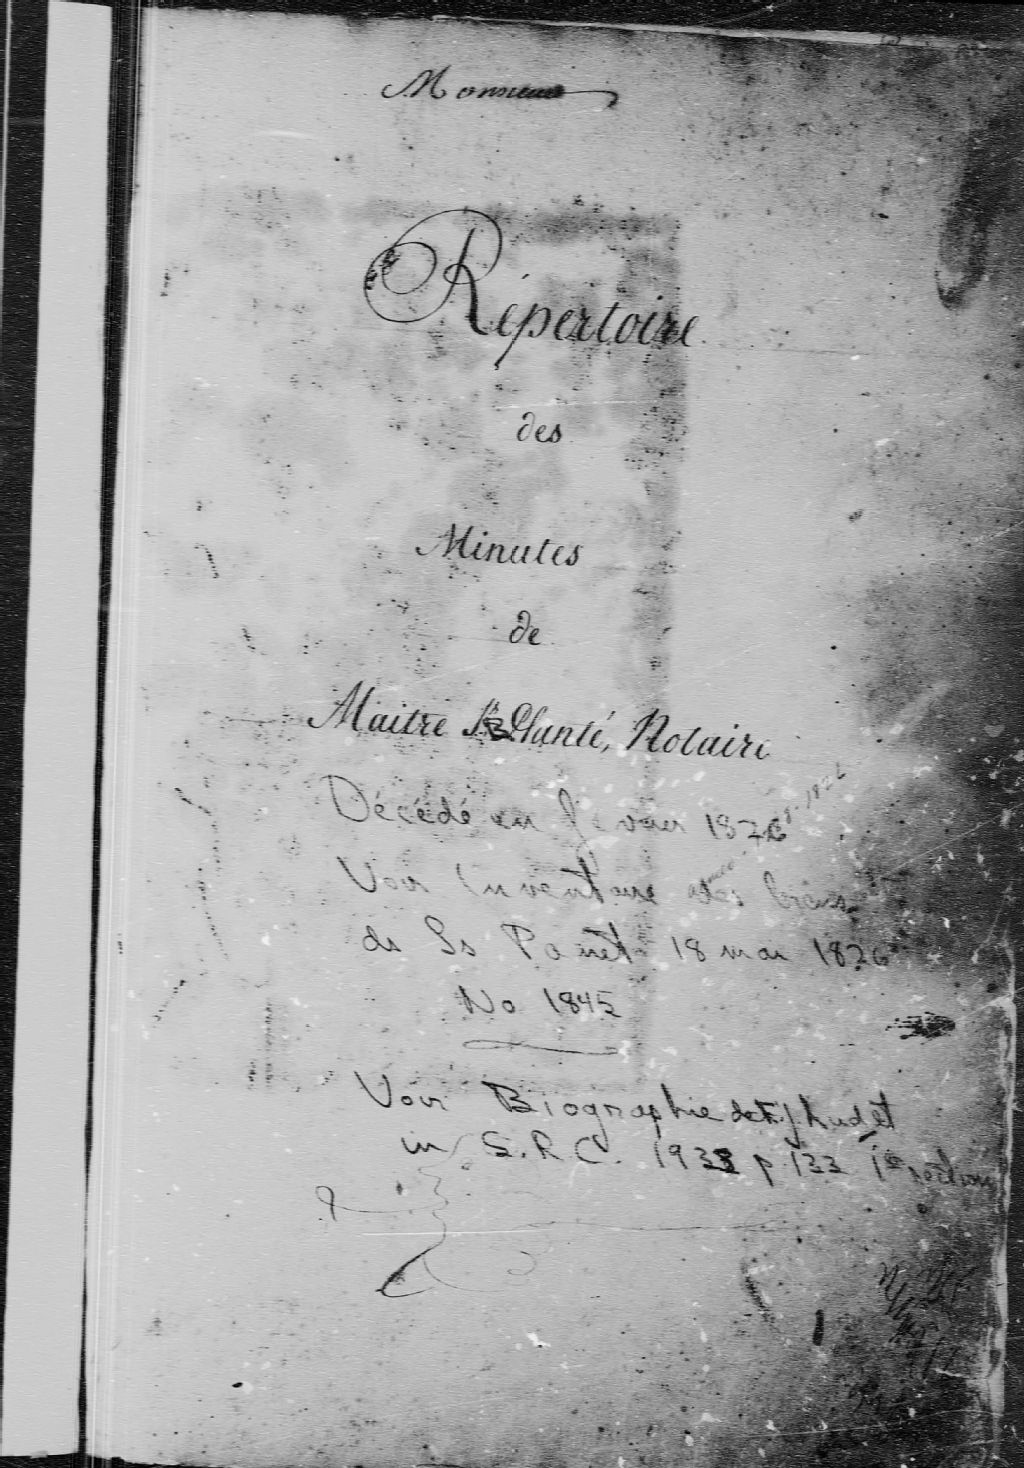 Monsieur
Répertoire
des
Minutes
de
Maitre JB Planté, Notaire
Décédé en février 1826
Voir Inventaire des biens
de Ls Panet 18 mai 1826
No 1845
Voir Biographie de F. J. Audet
in S.R.C. 1933 p. 133 1e section